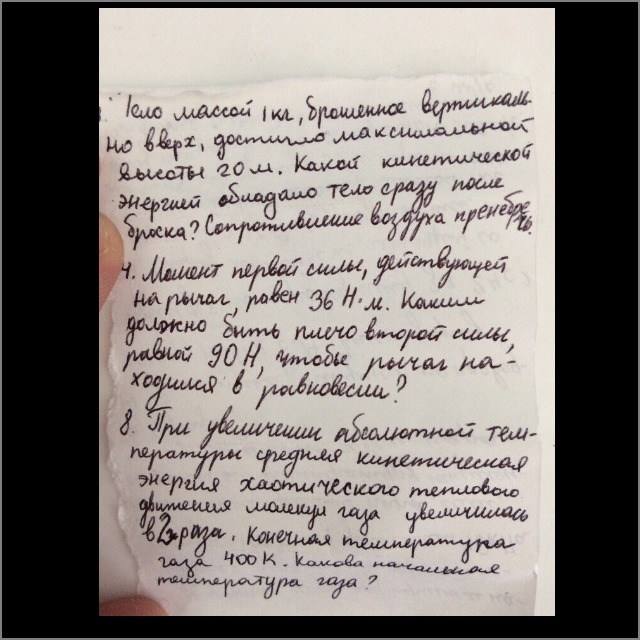 Тело массой 1 кг, брошенное вертикаль-
но вверх, достигло максимальной
высоты 20 м. Какой кинетической
энергией обладало тело сразу после
броска? Сопротивление воздуха пренебре
чь.
4. Момент первой силы, действующей
на рычаг, равен 36 Н·м. Каким
должно быть плечо второй силы,
равной 90 Н, чтобы рычаг на-
ходился в равновесии?
8. При увеличении абсолютной тем-
пературы средняя кинетическая
энергия хаотического теплового
движения молекул газа увеличилась
в 2 раза. Конечная температура
газа 400 К. Какова начальная
температура газа?